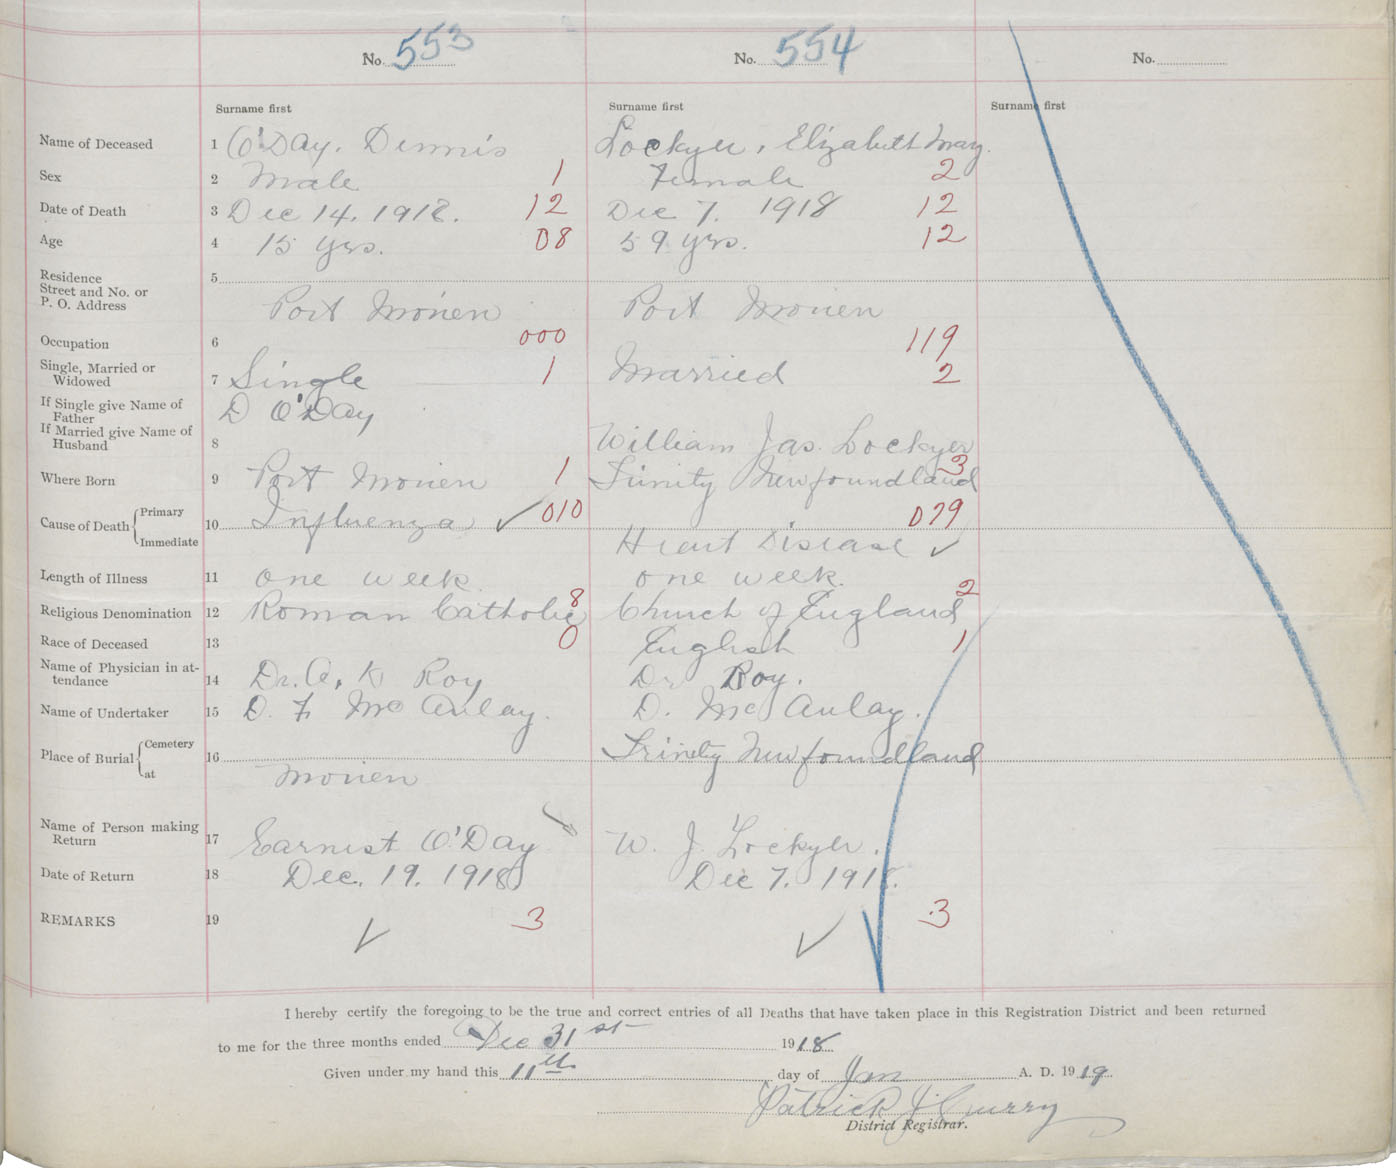 No. 553 No. 554 No.
Surname first Surname first Surname first
Name of Deceased 1 O'Day, Dennis Lockyer, Elizabeth May.
Sex 2 Male 1 Female 2
Date of Death 3 Dec 14. 1918. 12 Dec 7. 1918 12
Age 4 15 yrs. 08 59 yrs. 12
Residence 5
Street and No. or
P. O. Address Port Morien Port Morien
Occupation 6 000 119
Single, Married or
Widowed 7 Single 1 Married 2
If Single give Name of
Father D O'Day
If Married give Name of
Husband 8 William Jas. Lockyer
Where Born 9 Port Morien 1 Trinity Newfoundland 3
Cause of Death { Primary
10 Influenza ✓ 010 079
Immediate Heart Disease ✓
Length of Illness 11 one week one week.
Religious Denomination 12 Roman Catholic 8 Church of England 2
Race of Deceased 13 0 English 1
Name of Physician in at-
tendance 14 Dr. A. K Roy Dr Roy.
Name of Undertaker 15 D. F McAulay. D. McAulay.
Place of Burial { Cemetery
16 Trinity Newfoundland
at Morien
Name of Person making
Return 17 Earnest O'Day W. J. Lockyer.
Date of Return 18 Dec. 19. 1918 Dec 7. 1918.
REMARKS 19 ✓ 3 ✓ 3
I hereby certify the foregoing to be the true and correct entries of all Deaths that have taken place in this Registration District and been returned
to me for the three months ended Dec 31st 1918
Given under my hand this 11th day of Jan A. D. 1919
Patrick J Curry
District Registrar.